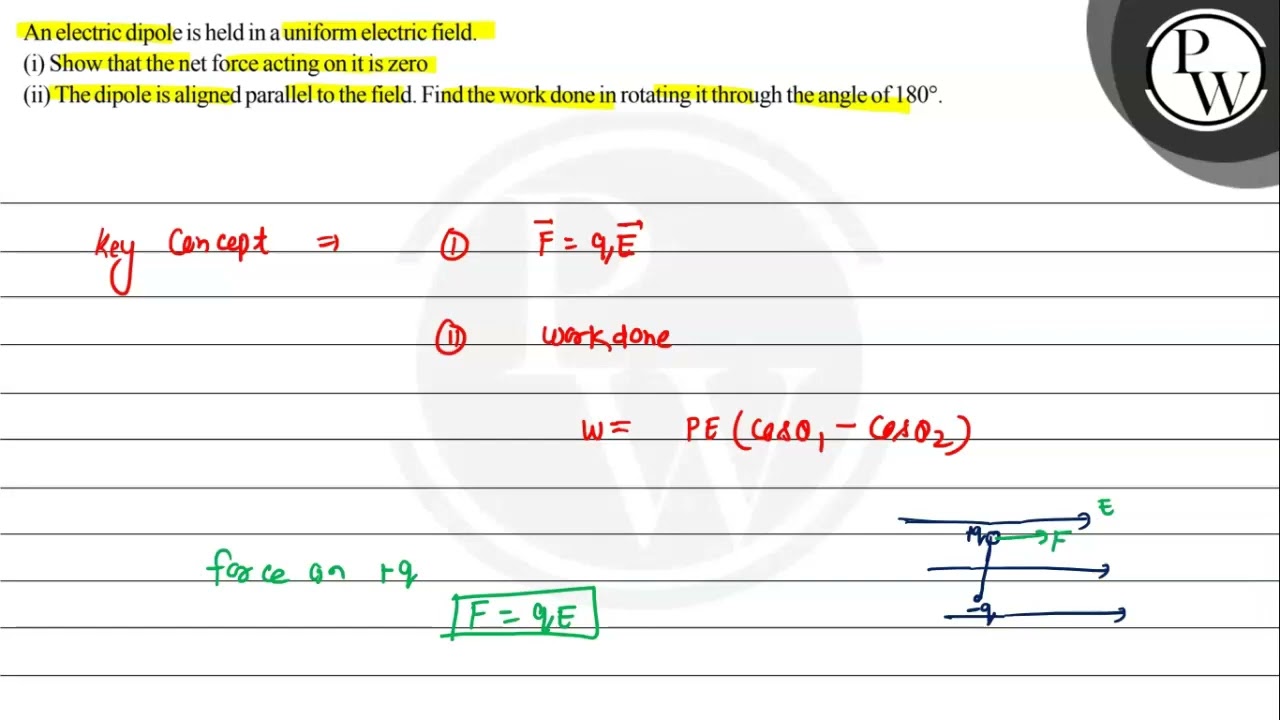 An electric dipole is held in a uniform electric field.
(i) Show that the net force acting on it is zero
(ii) The dipole is aligned parallel to the field. Find the work done in rotating it through the angle of 180°.
P
W
Key Concept ⇒ (i) F⃗ = qE⃗
(ii) work done
W = PE (cosθ₁ - cosθ₂)
E
+q F
force on +q
-q
F = qE